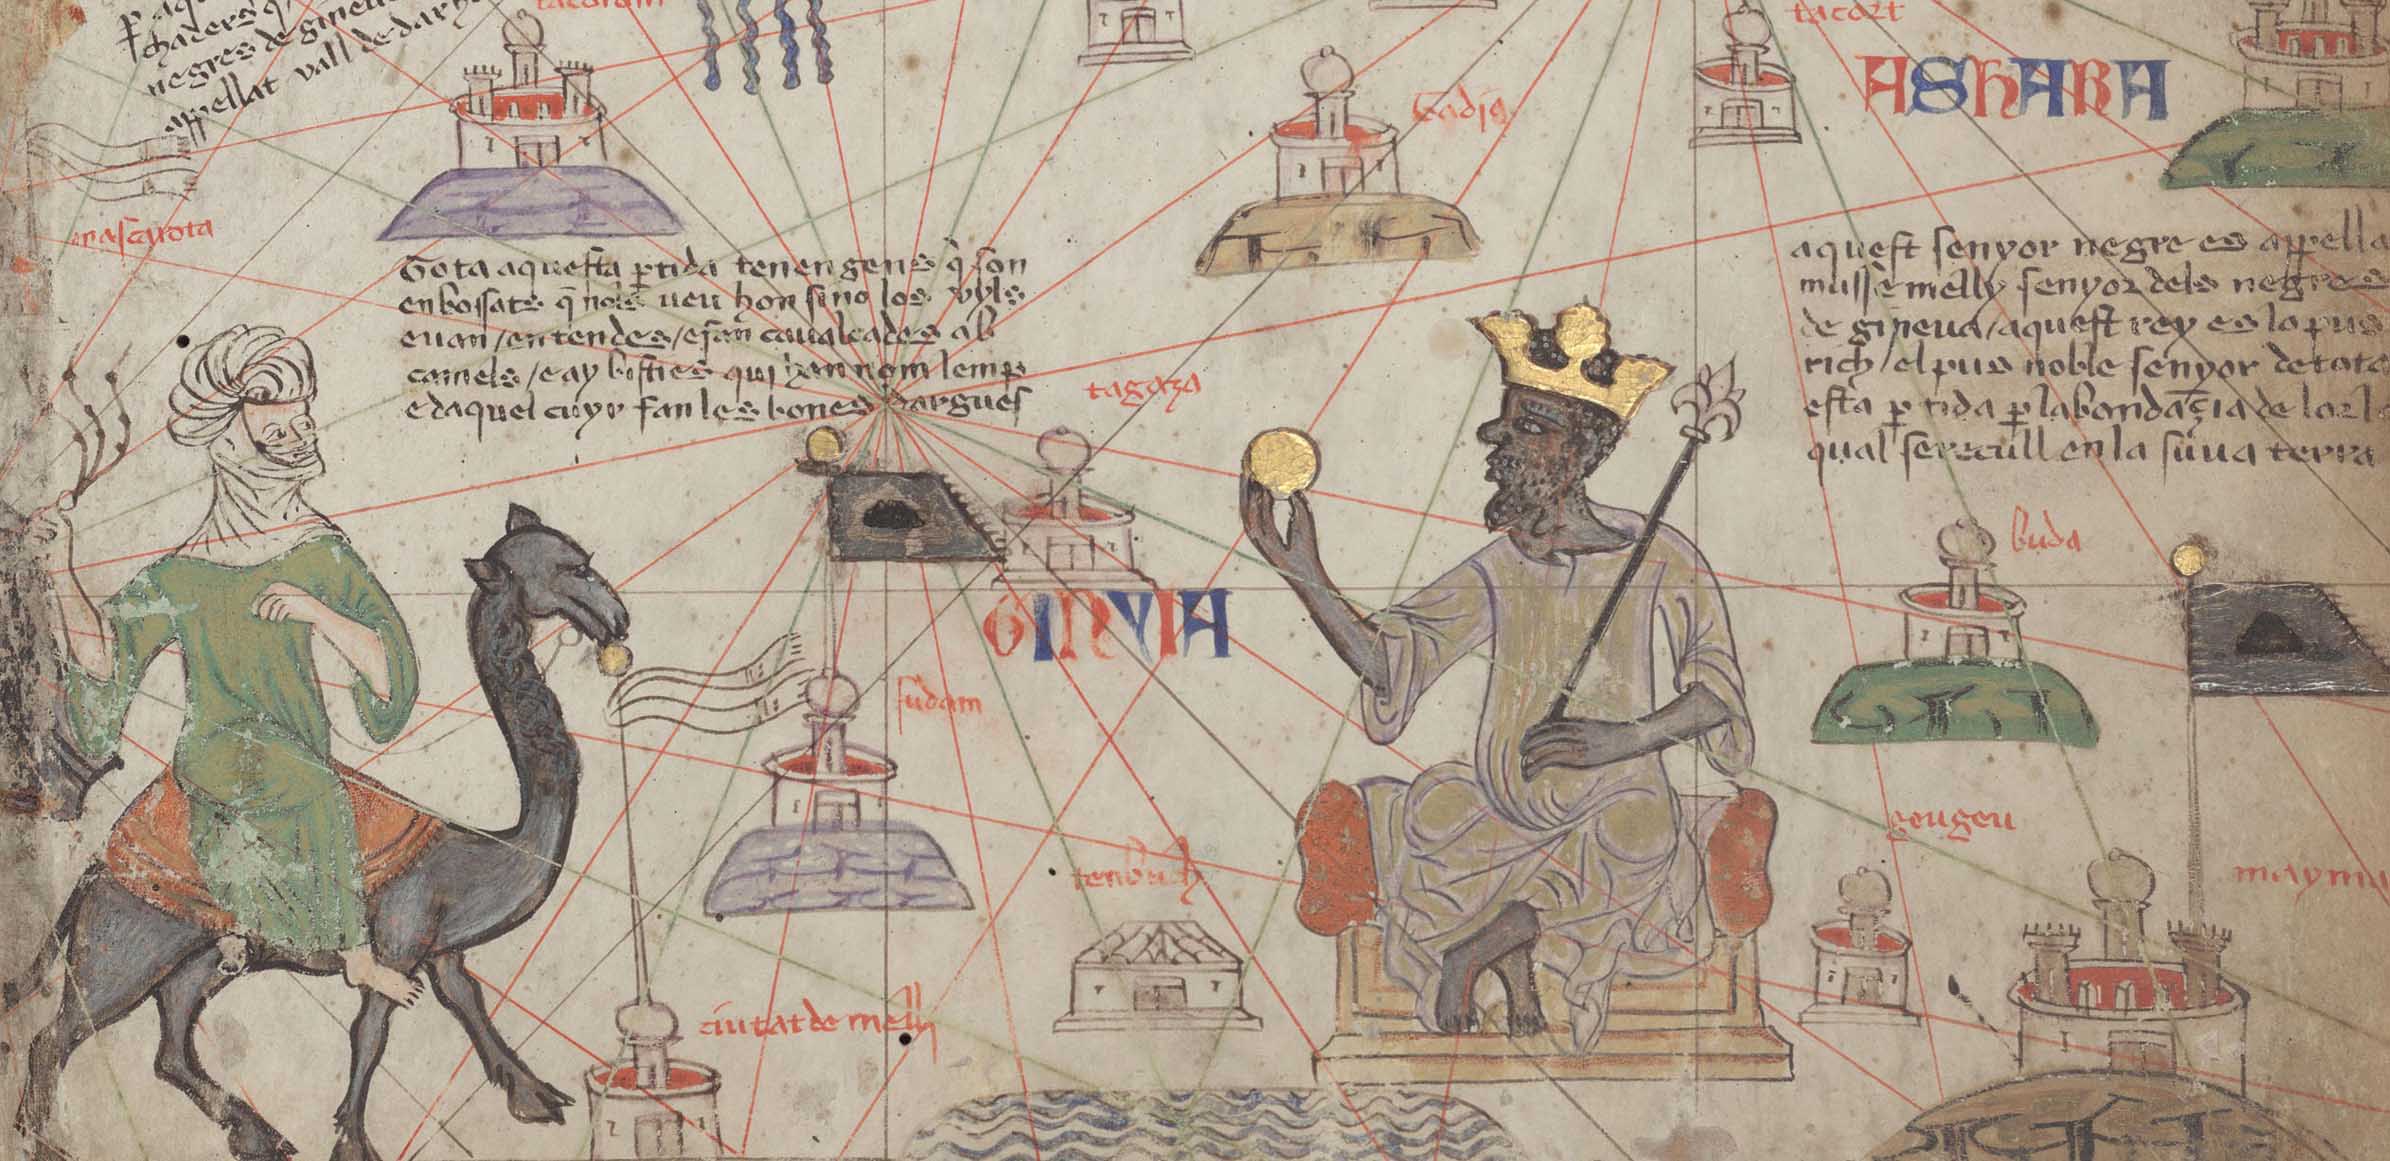 tacort
ASHARA
negres de gineu
appellat vall de dar
mascarota
Tota aquesta ptida tenen gens q̄ son
enbossats q̄ nols veu hon sino los vyls
e van / en tendes / e fan cavalcades ab
camels / e ay bisties qui han nom lemp
e daquel cuyr fan les bones dargues
aquest senyor negre es appella
mussē melly senyor dels negres
de gineua / aquest rey es lo pus
rich / el pus noble senyor de tota
esta ptida p labondaçia de lor lo
qual se recull en la suua terra
tagaza
buda
GINYIA
sudam
geugeu
tenbuch
mayma
ciutat de melly